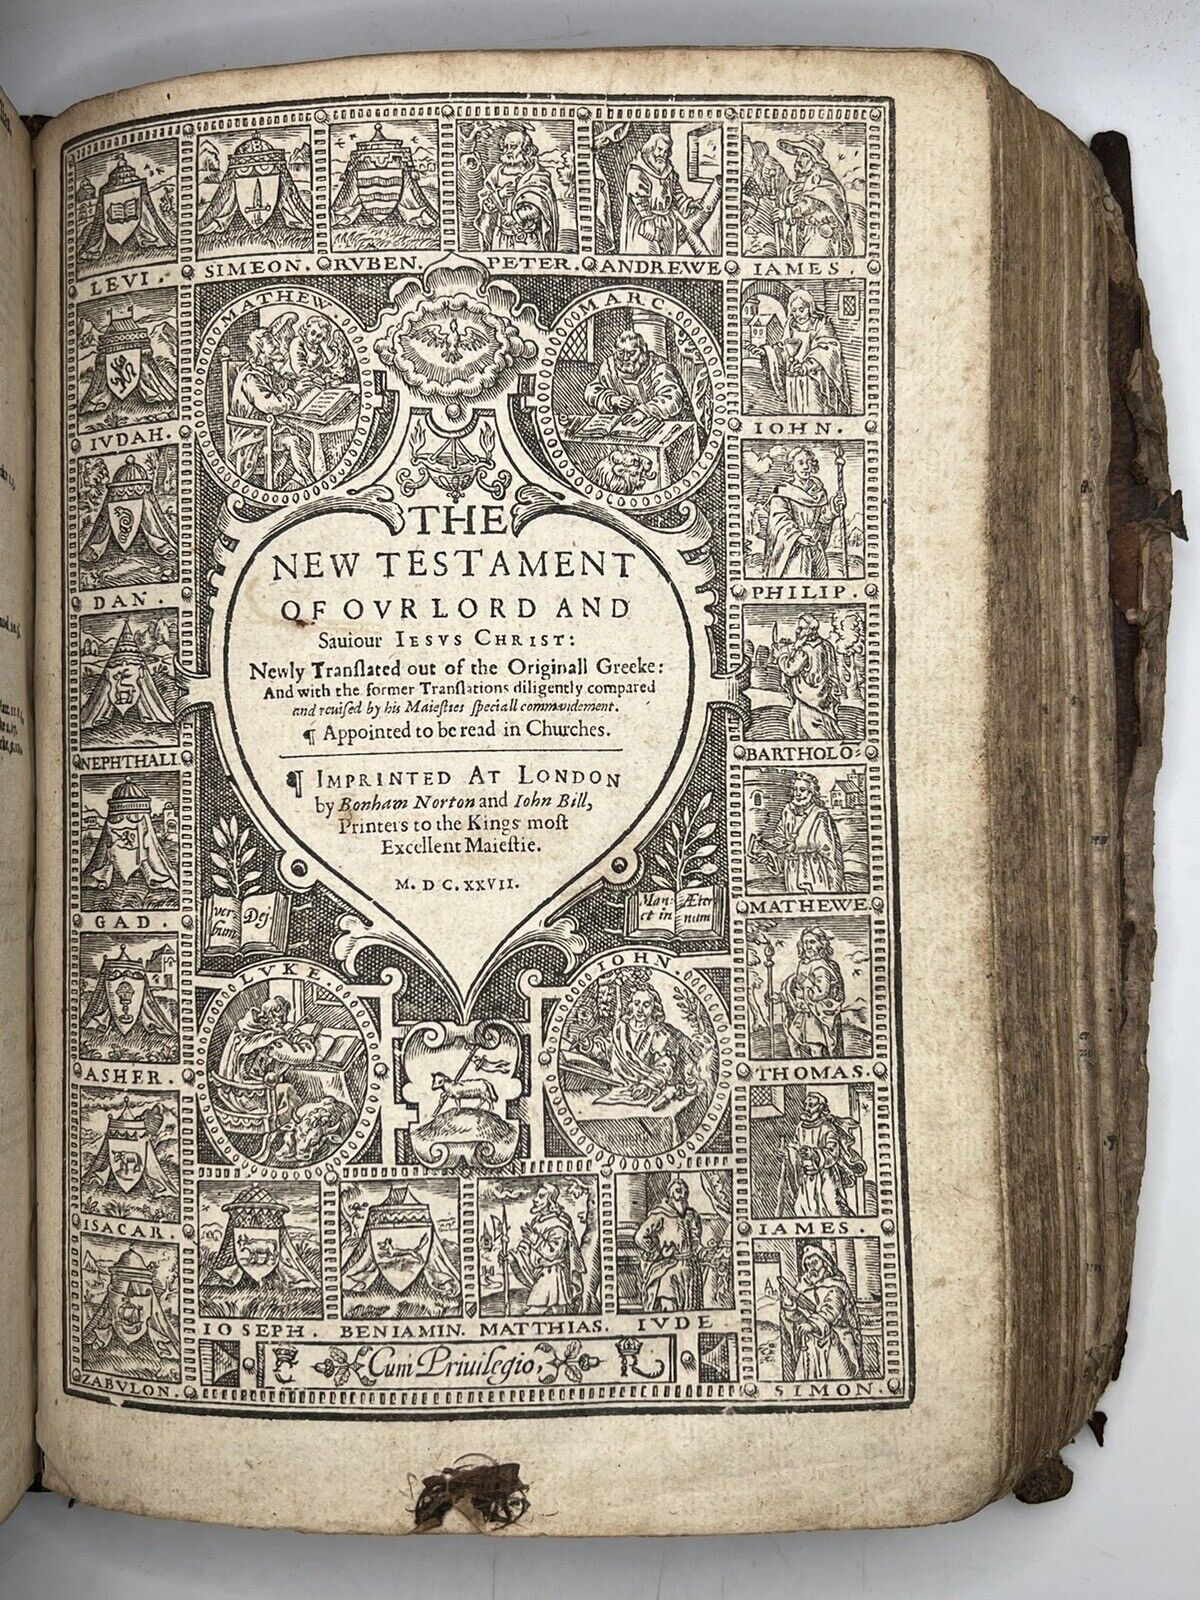 LEVI.
SIMEON.
RVBEN.
PETER.
ANDREWE
IAMES.
MATHEW.
MARC.
IVDAH.
IOHN.
DAN.
PHILIP.
NEPHTHALI.
BARTHOLO=
GAD.
MATHEWE.
ASHER.
THOMAS.
ISACAR.
IAMES.
ZABVLON.
SIMON.
THE
NEW TESTAMENT
OF OVR LORD AND
Sauiour IESVS CHRIST:
Newly Tranſlated out of the Originall Greeke:
And with the former Tranſlations diligently compared
and reuiſed by his Maieſties ſpeciall commandement.
¶ Appointed to be read in Churches.
¶ IMPRINTED AT LONDON
by Bonham Norton and Iohn Bill,
Printers to the Kings moſt
Excellent Maieſtie.
M. D C. XXVII.
ver
bum
Dej
Man
et in
Æter
num
LVKE
IOHN.
IOSEPH.
BENIAMIN.
MATTHIAS.
IVDE
R
Cum Priuilegio,
R